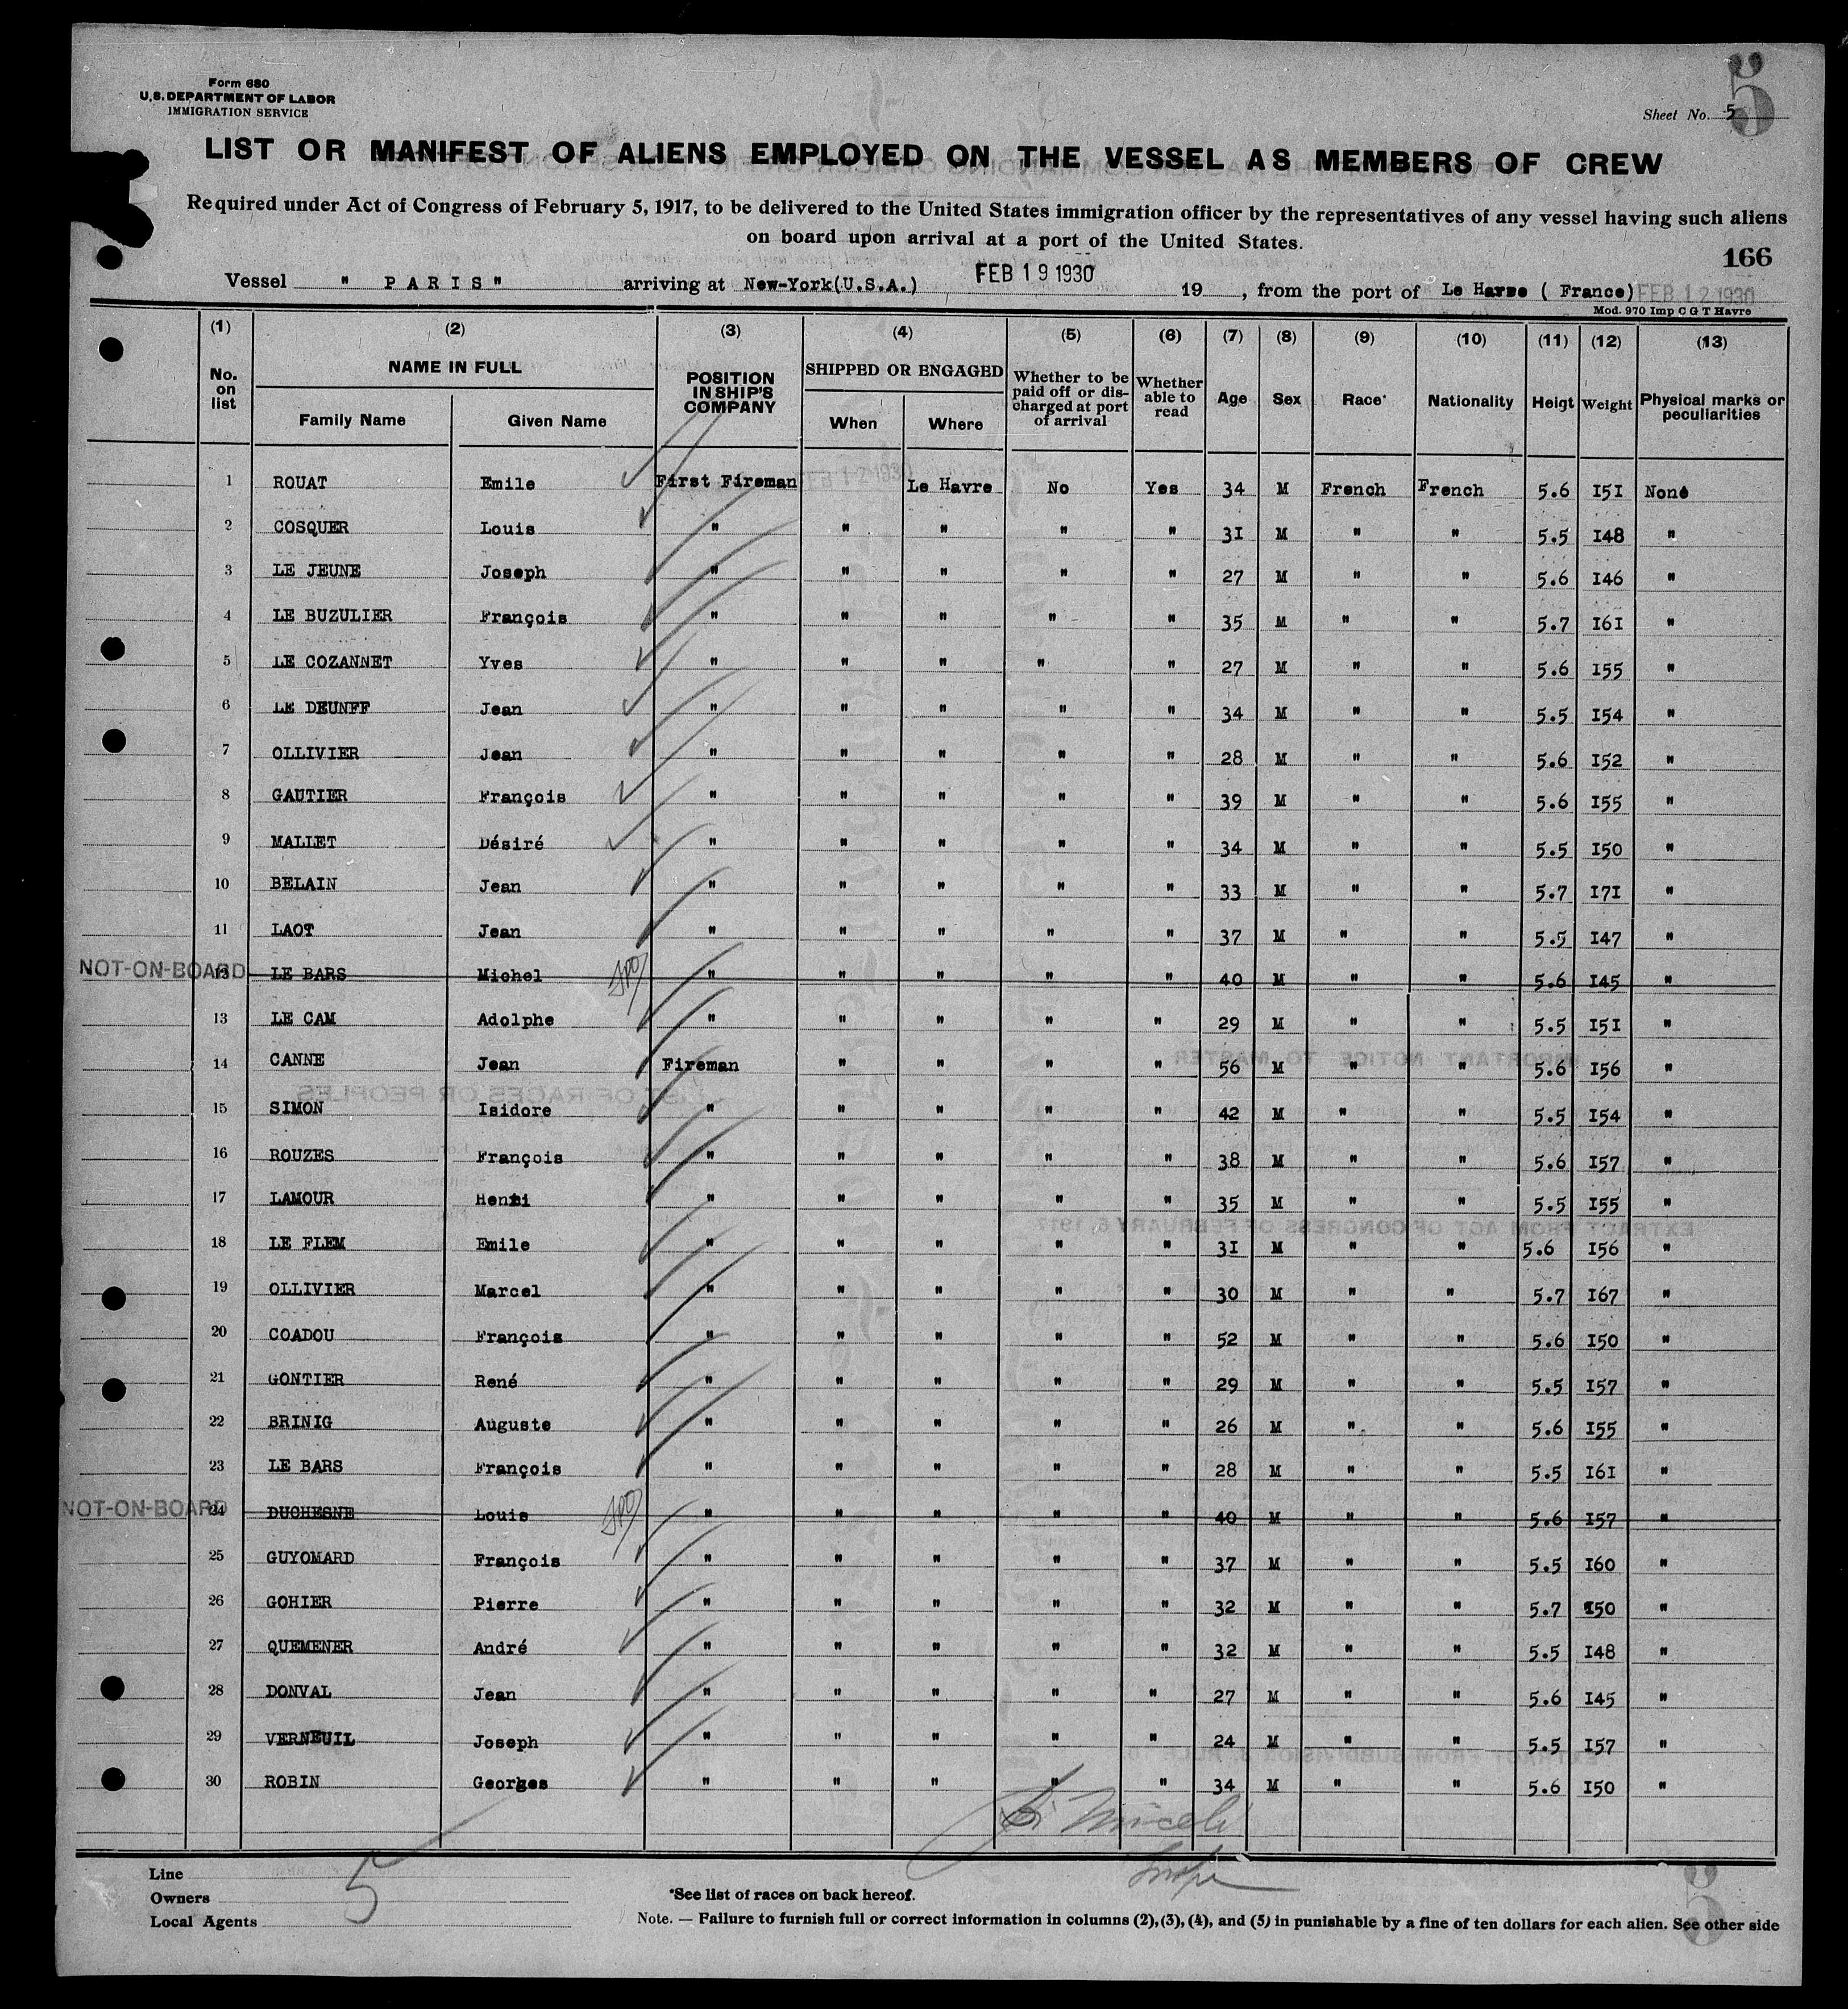 Form 680
U.S. DEPARTMENT OF LABOR
IMMIGRATION SERVICE
Sheet No. 5
5
LIST OR MANIFEST OF ALIENS EMPLOYED ON THE VESSEL AS MEMBERS OF CREW
Required under Act of Congress of February 5, 1917, to be delivered to the United States immigration officer by the representatives of any vessel having such aliens
on board upon arrival at a port of the United States.
166
Vessel " PARIS" arriving at New-York(U.S.A.) FEB 19 1930 19 , from the port of Le Havre ( France) FEB 12 1930
Mod. 970 Imp C G T Havre
(1) (2) (3) (4) (5) (6) (7) (8) (9) (10) (11) (12) (13)
No. on list NAME IN FULL Family Name Given Name POSITION IN SHIP'S COMPANY SHIPPED OR ENGAGED When Where Whether to be paid off or discharged at port of arrival Whether able to read Age Sex Race* Nationality Heigt Weight Physical marks or peculiarities
1 ROUAT Emile First Fireman FEB 12 1930 Le Havre No Yes 34 M French French 5.6 I5I None
2 COSQUER Louis " " " " " 3I M " " 5.5 I48 "
3 LE JEUNE Joseph " " " " " 27 M " " 5.6 I46 "
4 LE BUZULIER François " " " " " 35 M " " 5.7 I6I "
5 LE COZANNET Yves " " " " " 27 M " " 5.6 I55 "
6 LE DEUNFF Jean " " " " " 34 M " " 5.5 I54 "
7 OLLIVIER Jean " " " " " 28 M " " 5.6 I52 "
8 GAUTIER François " " " " " 39 M " " 5.6 I55 "
9 MALLET Désiré " " " " " 34 M " " 5.5 I50 "
10 BELAIN Jean " " " " " 33 M " " 5.7 I7I "
11 LAOT Jean " " " " " 37 M " " 5.5 I47 "
NOT-ON-BOARD 12 LE BARS Michel " " " " " 40 M " " 5.6 I45 "
13 LE CAM Adolphe " " " " " 29 M " " 5.5 I5I "
14 CANNE Jean Fireman " " " " 56 M " " 5.6 I56 "
15 SIMON Isidore " " " " " 42 M " " 5.5 I54 "
16 ROUZES François " " " " " 38 M " " 5.6 I57 "
17 LAMOUR Henri " " " " " 35 M " " 5.5 I55 "
18 LE FLEM Emile " " " " " 3I M " " 5.6 I56 "
19 OLLIVIER Marcel " " " " " 30 M " " 5.7 I67 "
20 COADOU François " " " " " 52 M " " 5.6 I50 "
21 GONTIER René " " " " " 29 M " " 5.5 I57 "
22 BRINIG Auguste " " " " " 26 M " " 5.6 I55 "
23 LE BARS François " " " " " 28 M " " 5.5 I6I "
NOT-ON-BOARD 24 DUCHESNE Louis " " " " " 40 M " " 5.6 I57 "
25 GUYOMARD François " " " " " 37 M " " 5.5 I60 "
26 GOHIER Pierre " " " " " 32 M " " 5.7 I50 "
27 QUEMENER André " " " " " 32 M " " 5.5 I48 "
28 DONVAL Jean " " " " " 27 M " " 5.6 I45 "
29 VERNEUIL Joseph " " " " " 24 M " " 5.5 I57 "
30 ROBIN Georges " " " " " 34 M " " 5.6 I50 "
Line
Owners
Local Agents
5
*See list of races on back hereof.
Note. — Failure to furnish full or correct information in columns (2),(3),(4), and (5) in punishable by a fine of ten dollars for each alien. See other side
5